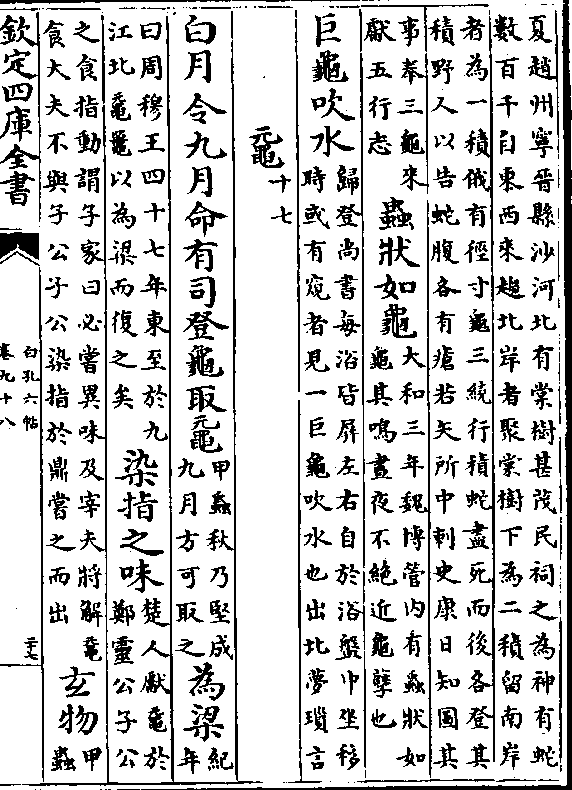 夏趙州寧晉縣沙河北有棠樹甚茂民祠之為神有蛇
數百千自東西來趨北岸者聚棠樹下為二積留南岸
者為一積俄有徑寸龜三繞行積蛇盡死而後各登其
積野人以告蛇腹各有瘡若矢所中刺史康日知圖其
事奉三龜來
獻五行志
蟲狀如龜
大和三年魏博管内有蟲狀如
龜其鳴晝夜不絶近龜孽也
巨龜吹水
歸登尚書每浴皆屏左右自於浴盤中坐移
時或有窺者見一巨龜吹水也出北夢瑣言
黿十七
白月令九月命有司登龜取黿
甲蟲秋乃堅成
九月方可取之
為梁
紀年
曰周穆王四十七年東至於九
江北黿鼉以為梁而復之矣
染指之味
楚人獻黿於
鄭靈公子公
之食指動謂子家曰必嘗異味及宰夫將解黿
食大夫不與子公子公染指於鼎嘗之而出
玄物
甲
蟲
欽定四庫全書
白孔六帖
卷九十八
二十七